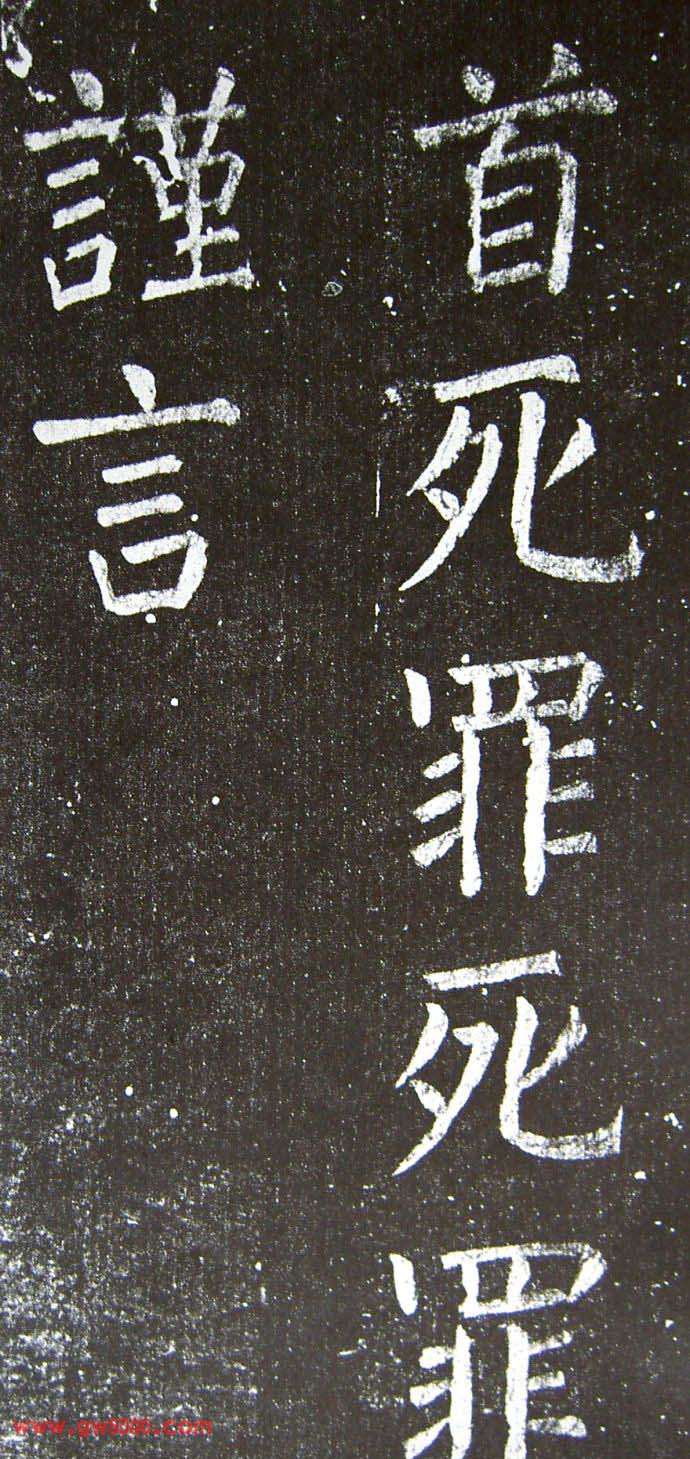 首死罪死罪
謹言
www.gw5000.com